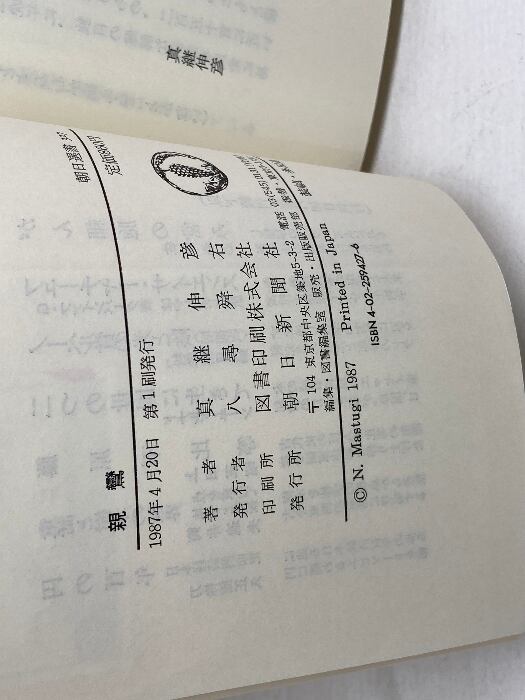 真継伸彦
朝日選書
定価860円
親鸞
1987年4月20日 第1刷発行
著者 真継伸彦
発行者 八尋舜右
印刷所 図書印刷株式会社
発行所 朝日新聞社
〒104 東京都中央区築地5-3-2
編集・図書編集室 販売・出版販売部
© N. Mastugi 1987 Printed in Japan
ISBN 4-02-259427-6